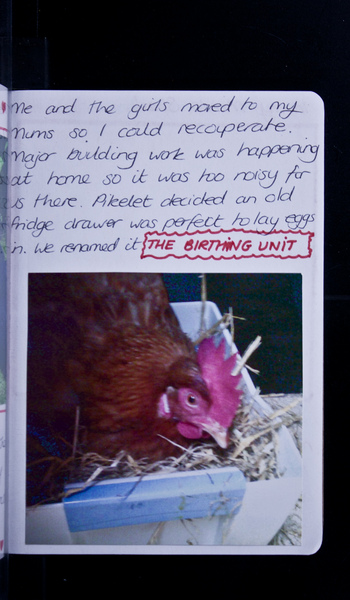 Me and the girls moved to my
Mums so I could recuperate.
Major building work was happening
at home so it was too noisy for
us there. Pikelet decided an old
fridge drawer was perfect to lay eggs
in. We renamed it THE BIRTHING UNIT